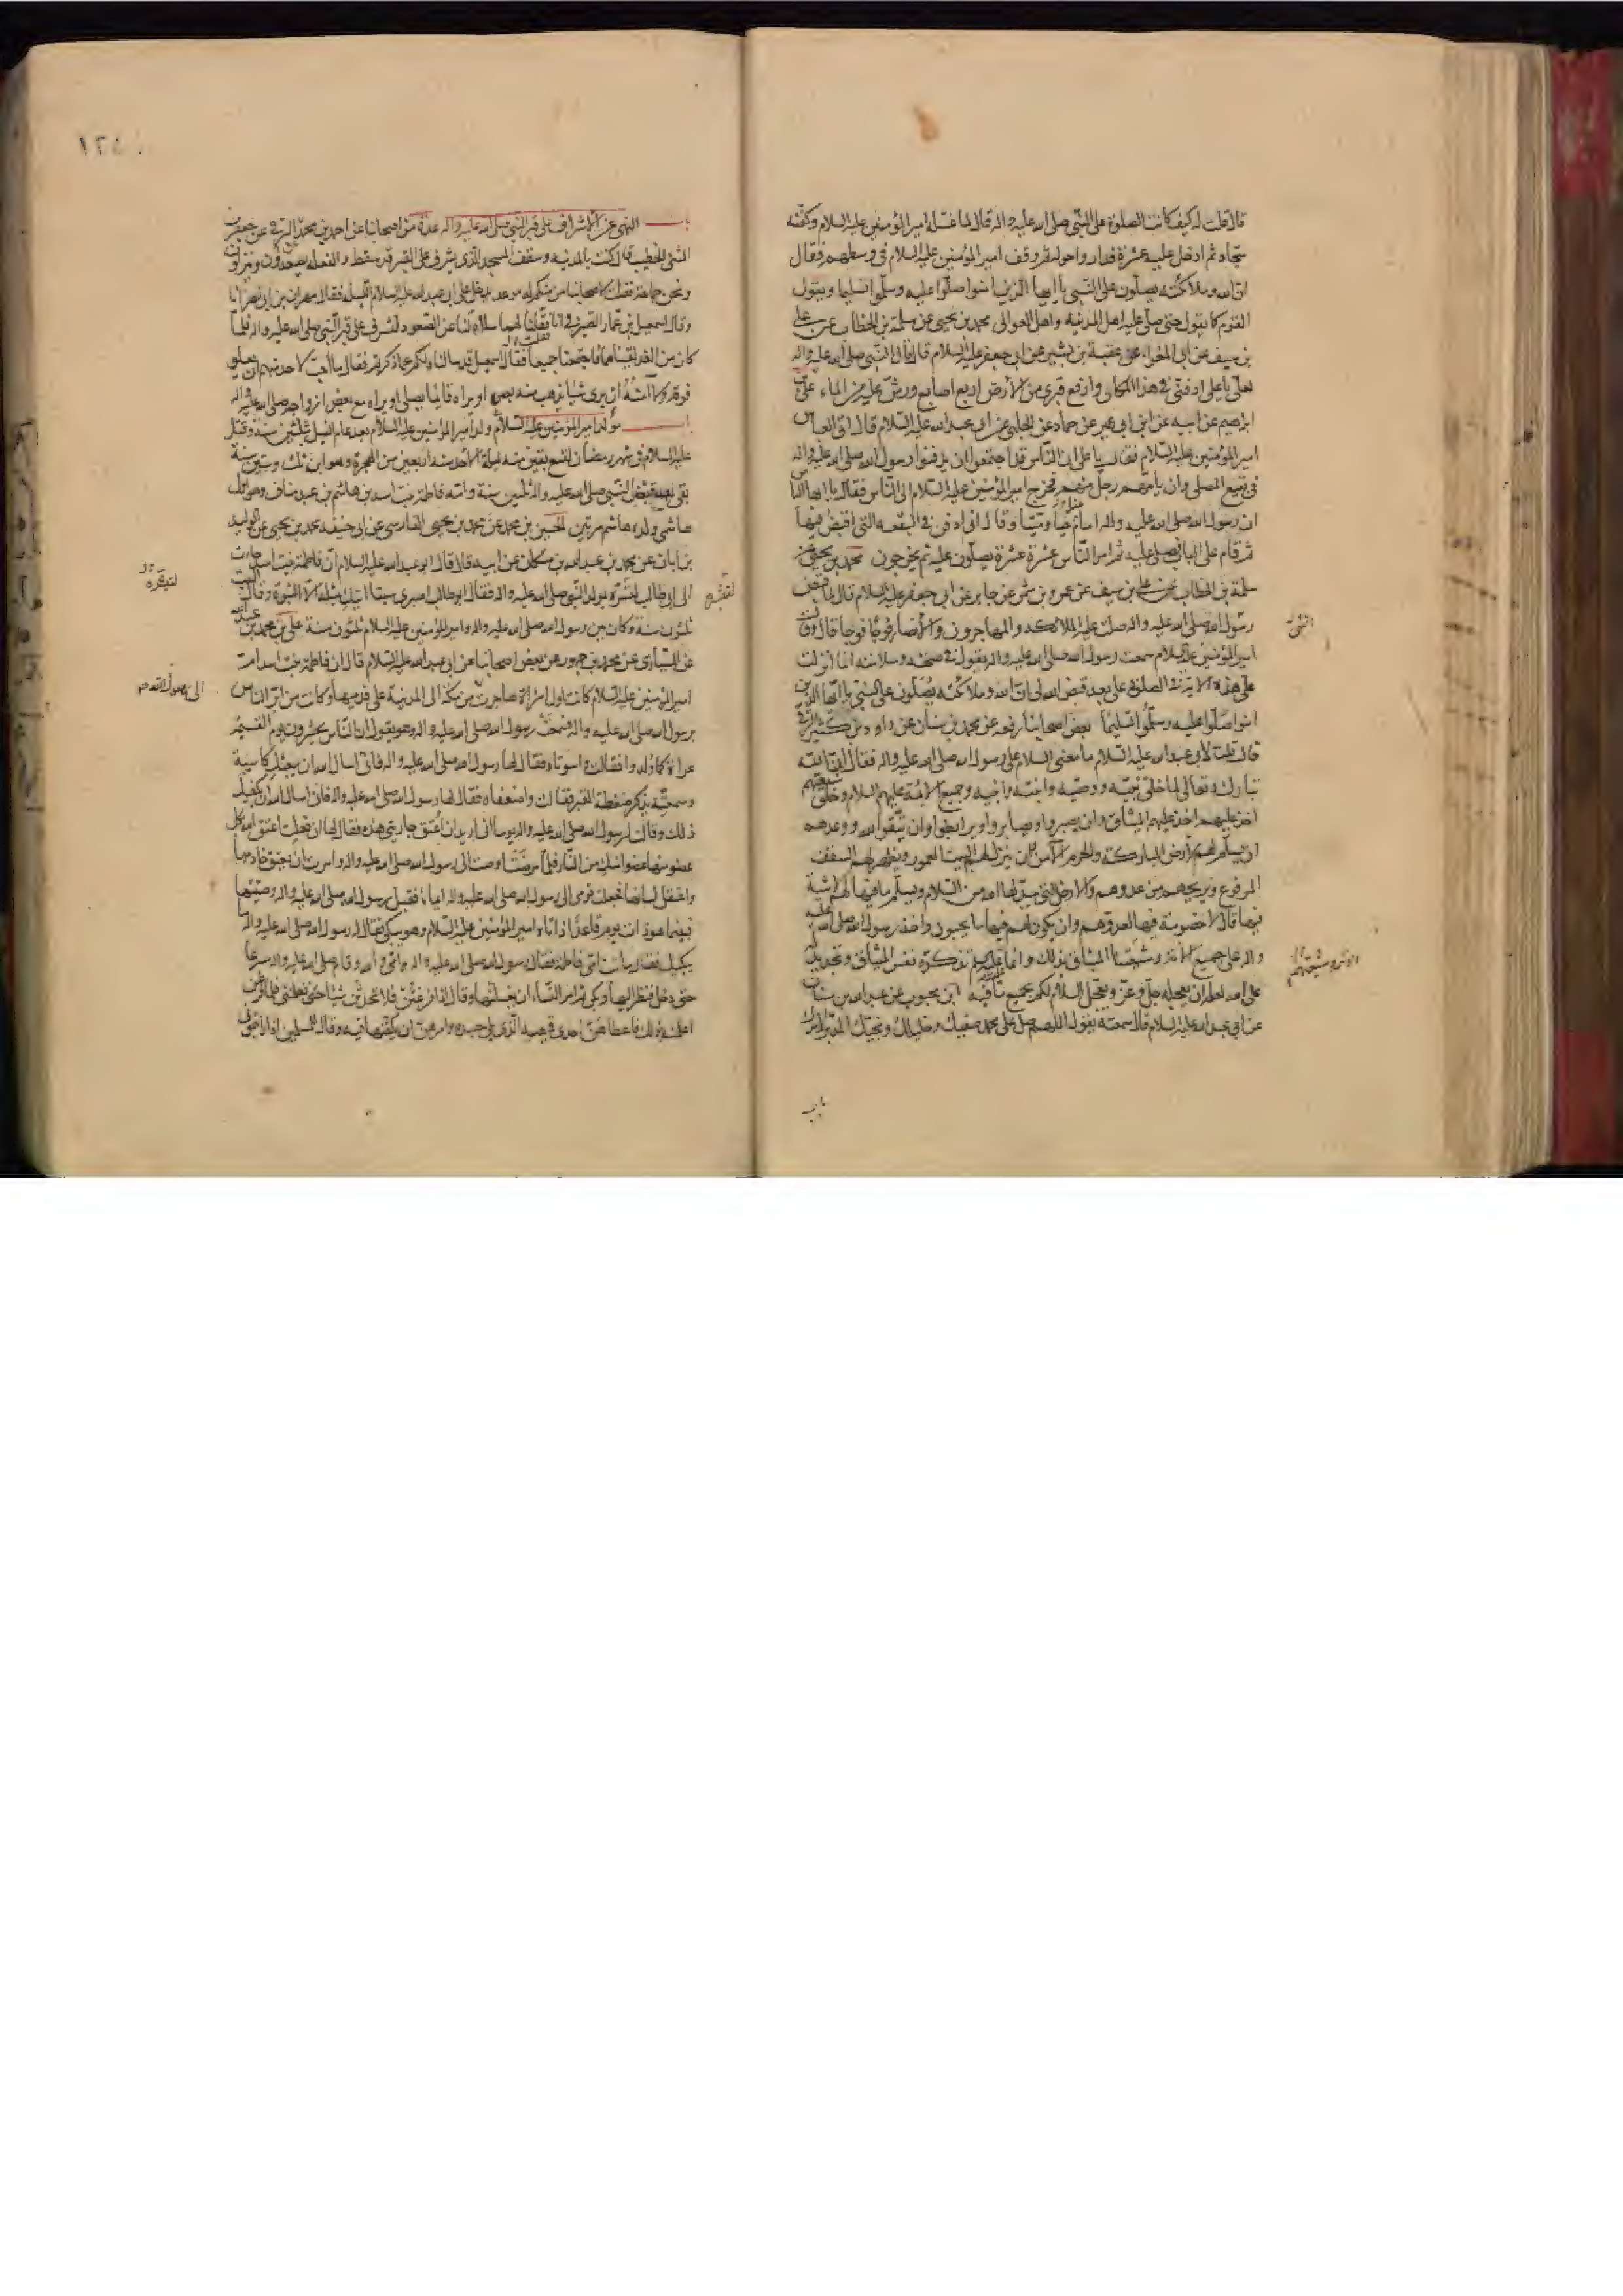 قال قلت له كيف كانت الصلوة على النبي صلى الله عليه واله قال لما غسله امير المؤمنين عليه السلام وكفنه
سجاه ثم ادخل عليه عشرة فداروا حوله ثم وقف امير المؤمنين عليه السلام في وسطهم فقال
ان الله وملائكته يصلون على النبي يا ايها الذين امنوا صلوا عليه وسلموا تسليما فيقول
القوم كما يقول حتى صلى عليه اهل المدينه واهل العوالي محمد بن يحيى عن سلمة بن الخطاب عن علي
بن سيف عن ابي المغرا عن عقبة بن بشير عن ابي جعفر عليه السلام قال قال النبي صلى الله عليه واله
لعلي يا علي ادفني في هذا المكان وارفع قبري من الارض اربع اصابع ورش عليه من الماء علي بن
ابرهيم عن ابيه عن ابن ابي عمير عن حماد عن الحلبي عن ابي عبد الله عليه السلام قال اتى العباس
امير المؤمنين عليه السلام فقال يا علي ان الناس قد اجتمعوا ان يدفنوا رسول الله صلى الله عليه واله
في بقيع المصلى وان يامهم رجل منهم فخرج امير المؤمنين عليه السلام الى الناس فقال يا ايها الناس
ان رسول الله صلى الله عليه واله امام حيا وميتا وقال اني ادفن في البقعه التي اقبض فيها
ثم قام على الباب فصلى عليه ثم امر الناس عشرة عشرة يصلون عليه ثم يخرجون محمد بن يحيى عن
سلمة بن الخطاب عن علي بن سيف عن عمرو بن شمر عن جابر عن ابي جعفر عليه السلام قال لما قبض
رسول الله صلى الله عليه واله صلت عليه الملائكه والمهاجرون والانصار فوجا فوجا قال وقال
امير المؤمنين عليه السلام سمعت رسول الله صلى الله عليه واله يقول في صحته وسلامته انما انزلت
علي هذه الاية في الصلوة علي بعد قبض الله لي ان الله وملائكته يصلون على النبي يا ايها الذين
امنوا صلوا عليه وسلموا تسليما بعض اصحابنا رفعه عن محمد بن سنان عن داود بن كثير الرقي
قال قلت لابي عبد الله عليه السلام ما معنى السلام على رسول الله صلى الله عليه واله فقال ان الله
تبارك وتعالى لما خلق نبيه ووصيه وابنته وابنيه وجميع الائمة عليهم السلام وخلق شيعتهم
اخذ عليهم الميثاق وان يصبروا ويصابروا ويرابطوا وان يتقوا الله ووعدهم
ان يسلم لهم الارض المباركة والحرم الآمن وان ينزل لهم البيت المعمور ويظهر لهم السقف
المرفوع ويريحهم من عدوهم والارض التي يبدلها الله من السلام ويسلم ما فيها لهم لا شية
فيها قال لا خصومة فيها لعدوهم وان يكون لهم فيها ما يحبون واخذ رسول الله صلى الله عليه
واله على جميع الائمة وشيعتنا الميثاق بذلك وانما السلام عليه تذكرة نفس الميثاق وتجديد له
على الله لعله ان يعجله جل وعز ويعجل السلام لكم بجميع ما فيه ابن محبوب عن عبد الله بن سنان
عن ابي عبد الله عليه السلام قال سمعته يقول اللهم صل على محمد صفيك وخليلك ونجيك المدبر لامرك
باب
باب النهي عن الاشراف على قبر النبي صلى الله عليه واله عدة من اصحابنا عن احمد بن محمد البرقي عن جعفر بن
المثنى الخطيب قال كنت بالمدينه وسقف المسجد الذي يشرف على القبر قد سقط والفعلة يصعدون وينزلون
ونحن جماعة فقلت لاصحابنا من منكم له موعد يدخل على ابي عبد الله عليه السلام الليلة فقال مهران بن ابي نصر انا
وقال اسمعيل بن عمار الصيرفي انا فقلنا لهما سلاه لنا عن الصعود لنشرف على قبر النبي صلى الله عليه واله فلما
كان من الغد لقيناهما فاجتمعنا جميعا فقال اسمعيل قد سالناه لكم عما ذكرتم فقال ما احب لاحد منهم ان يعلو
فوقه ولا آمنه ان يرى شيئا يذهب منه بصره او يراه قائما يصلي او يراه مع بعض ازواجه صلى الله عليه واله
باب مولد امير المؤمنين عليه السلام ولد امير المؤمنين عليه السلام بعد عام الفيل بثلثين سنة وقتل
عليه السلام في شهر رمضان لتسع بقين منه ليلة الاحد سنه اربعين من الهجرة وهو ابن ثلث وستين سنة
بقي بعد قبض النبي صلى الله عليه واله ثلثين سنة وامه فاطمة بنت اسد بن هاشم بن عبد مناف وهو اول
هاشمي ولده هاشم مرتين الحسين بن محمد عن محمد بن يحيى الفارسي عن ابي حنيفه محمد بن يحيى عن الوليد
بن ابان عن محمد بن عبد الله بن مسكان عن ابيه قال قال ابو عبد الله عليه السلام ان فاطمة بنت اسد جاءت
الى ابي طالب لتبشره بمولد النبي صلى الله عليه واله فقال ابو طالب اصبري سبتا ابشرك بمثله الا النبوة وقال السبت
ثلثون سنة وكان بين رسول الله صلى الله عليه واله وامير المؤمنين عليه السلام ثلثون سنة علي بن محمد بن عبد الله
عن السياري عن محمد بن جمهور عن بعض اصحابنا عن ابي عبد الله عليه السلام قال ان فاطمة بنت اسد ام
امير المؤمنين عليه السلام كانت اول امراة هاجرت من مكه الى المدينة على قدميها وكانت من ابر الناس
برسول الله صلى الله عليه واله فسمعت رسول الله صلى الله عليه واله وهو يقول ان الناس يحشرون يوم القيمة
عراة كما ولدوا فقالت وا سوتاه فقال لها رسول الله صلى الله عليه واله فاني اسال الله ان يبعثك كاسية
وسمعته يذكر ضغطة القبر فقالت وا ضعفاه فقال لها رسول الله صلى الله عليه واله فاني اسال الله ان يكفيك
ذلك وقالت لرسول الله صلى الله عليه واله يوما اني اريد ان اعتق جاريتي هذه فقال لها ان فعلت اعتق الله بكل
عضو منها عضوا منك من النار فلما مرضت اوصت الى رسول الله صلى الله عليه واله وامرت ان يعتق خادمها
واعتقل لسانها فجعلت تومي الى رسول الله صلى الله عليه واله ايماء فقبل رسول الله صلى الله عليه واله وصيتها
فبينما هو ذات يوم قاعد اذ اتاه امير المؤمنين عليه السلام وهو يبكي فقال له رسول الله صلى الله عليه واله ما
يبكيك فقال ماتت امي فاطمة فقال رسول الله صلى الله عليه واله وامي والله وقام صلى الله عليه واله مسرعا
حتى دخل فنظر اليها وبكى ثم امر النساء ان يغسلنها وقال اذا فرغتن فلا تحدثن شيئا حتى تعلمنني فلما فرغن
اعلمنه بذلك فاعطاهن احدى قميصيه الذي يلي جسده وامرهن ان يكفنها فيه وقال للمسلمين اذا رايتموني